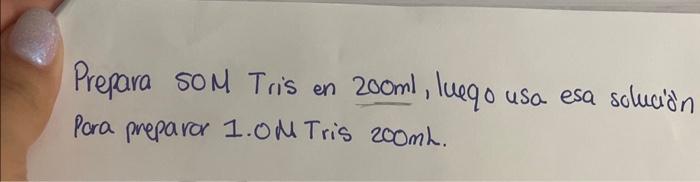 Prepara 50M Tris en 200ml, luego usa esa solución
Para preparar 1.0M Tris 200mL.